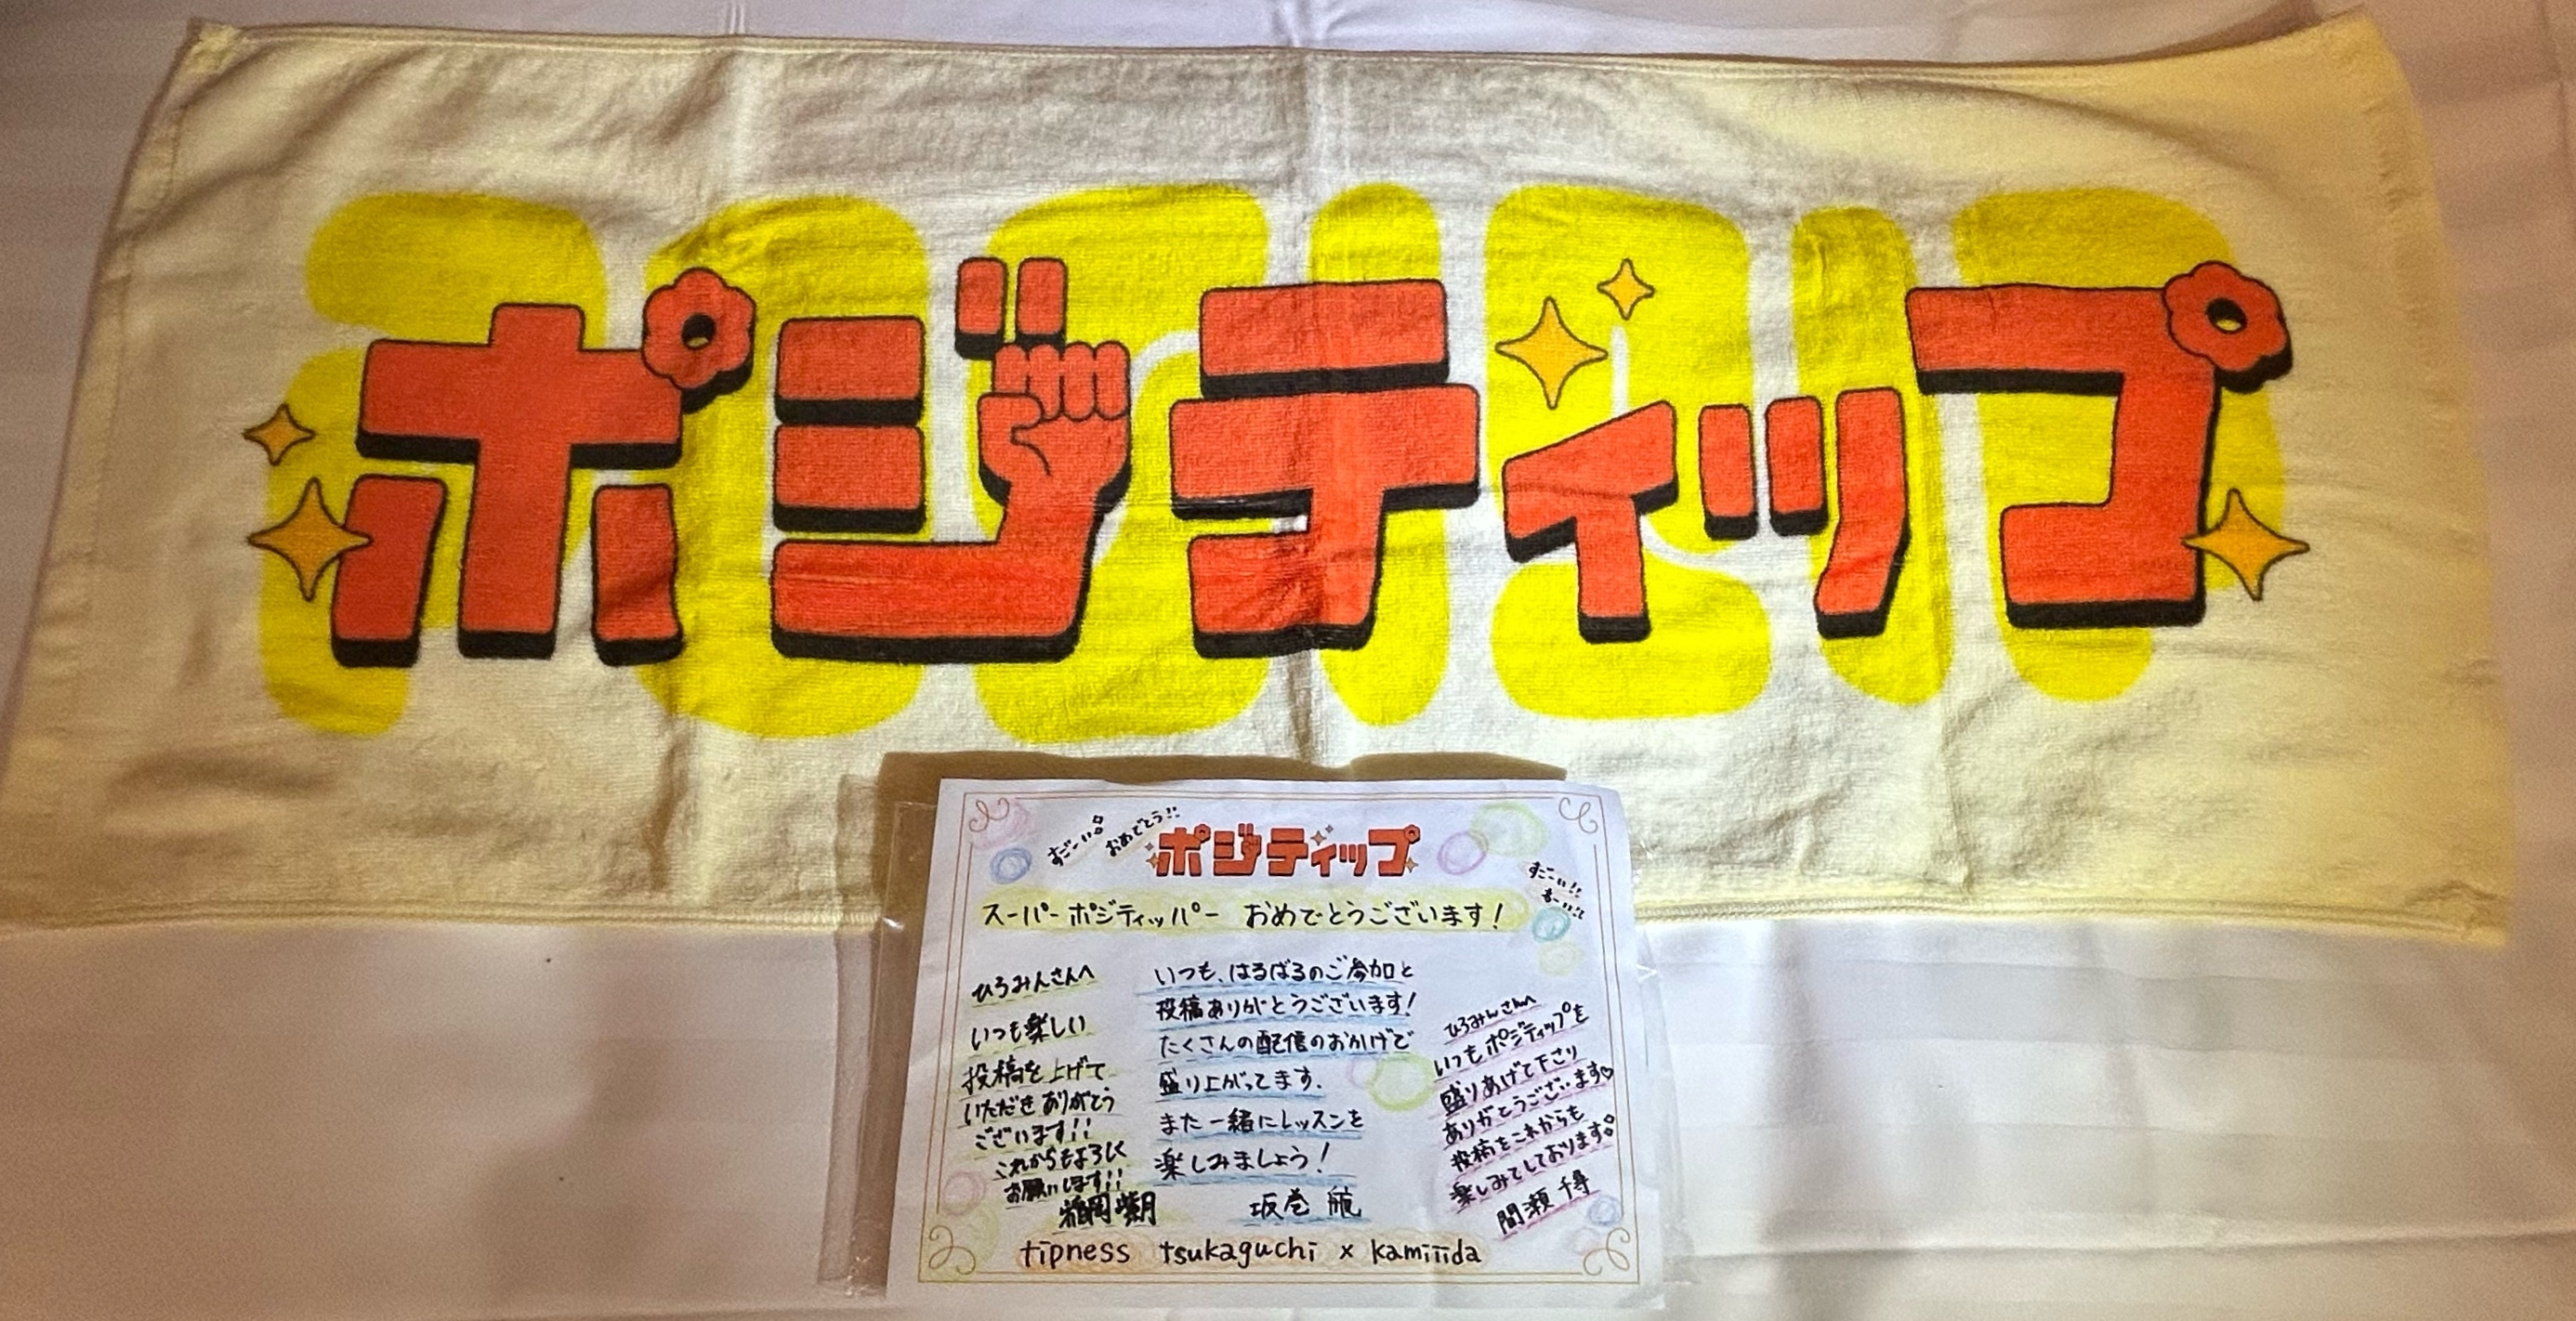 ポジティップ
すごーい!
おめでとう!!
ポジティップ
すごーい!!
スーパーポジティッパー おめでとうございます!
ひろみんさんへ
いつも楽しい
投稿を上げて
いただきありがとう
ございます!!
これからもよろしく
お願いします!!
いつも、はるばるのご参加と
投稿ありがとうございます!
たくさんの配信のおかげで
盛り上がってます.
また一緒にレッスンを
楽しみましょう!
坂巻 航
ひろみんさんへ
いつもポジティップを
盛りあげて下さり
ありがとうございます♡
投稿をこれからも
楽しみてしております!
間瀬 千尋
tipness tsukaguchi × kamiiida